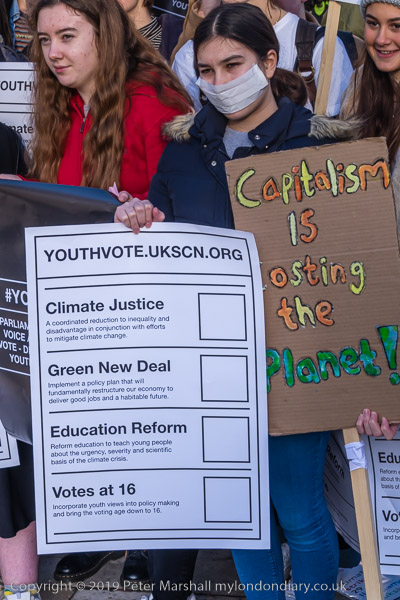 YOUTHVOTE.UKSCN.ORG
Climate Justice
A coordinated reduction to inequality and
disadvantage in conjunction with efforts
to mitigate climate change.
Green New Deal
Implement a policy plan that will
fundamentally restructure our economy to
deliver good jobs and a habitable future.
Education Reform
Reform education to teach young people
about the urgency, severity and scientific
basis of the climate crisis.
Votes at 16
Incorporate youth views into policy making
and bring the voting age down to 16.
Capitalism
IS
osting
the
Planet!
YOUTHV
#YO
PARLIAM
VOICE
VOTE - D
YOUT
Edu
Vote
Incorpo
and brin
Copyright © 2019 Peter Marshall mylondondiary.co.uk